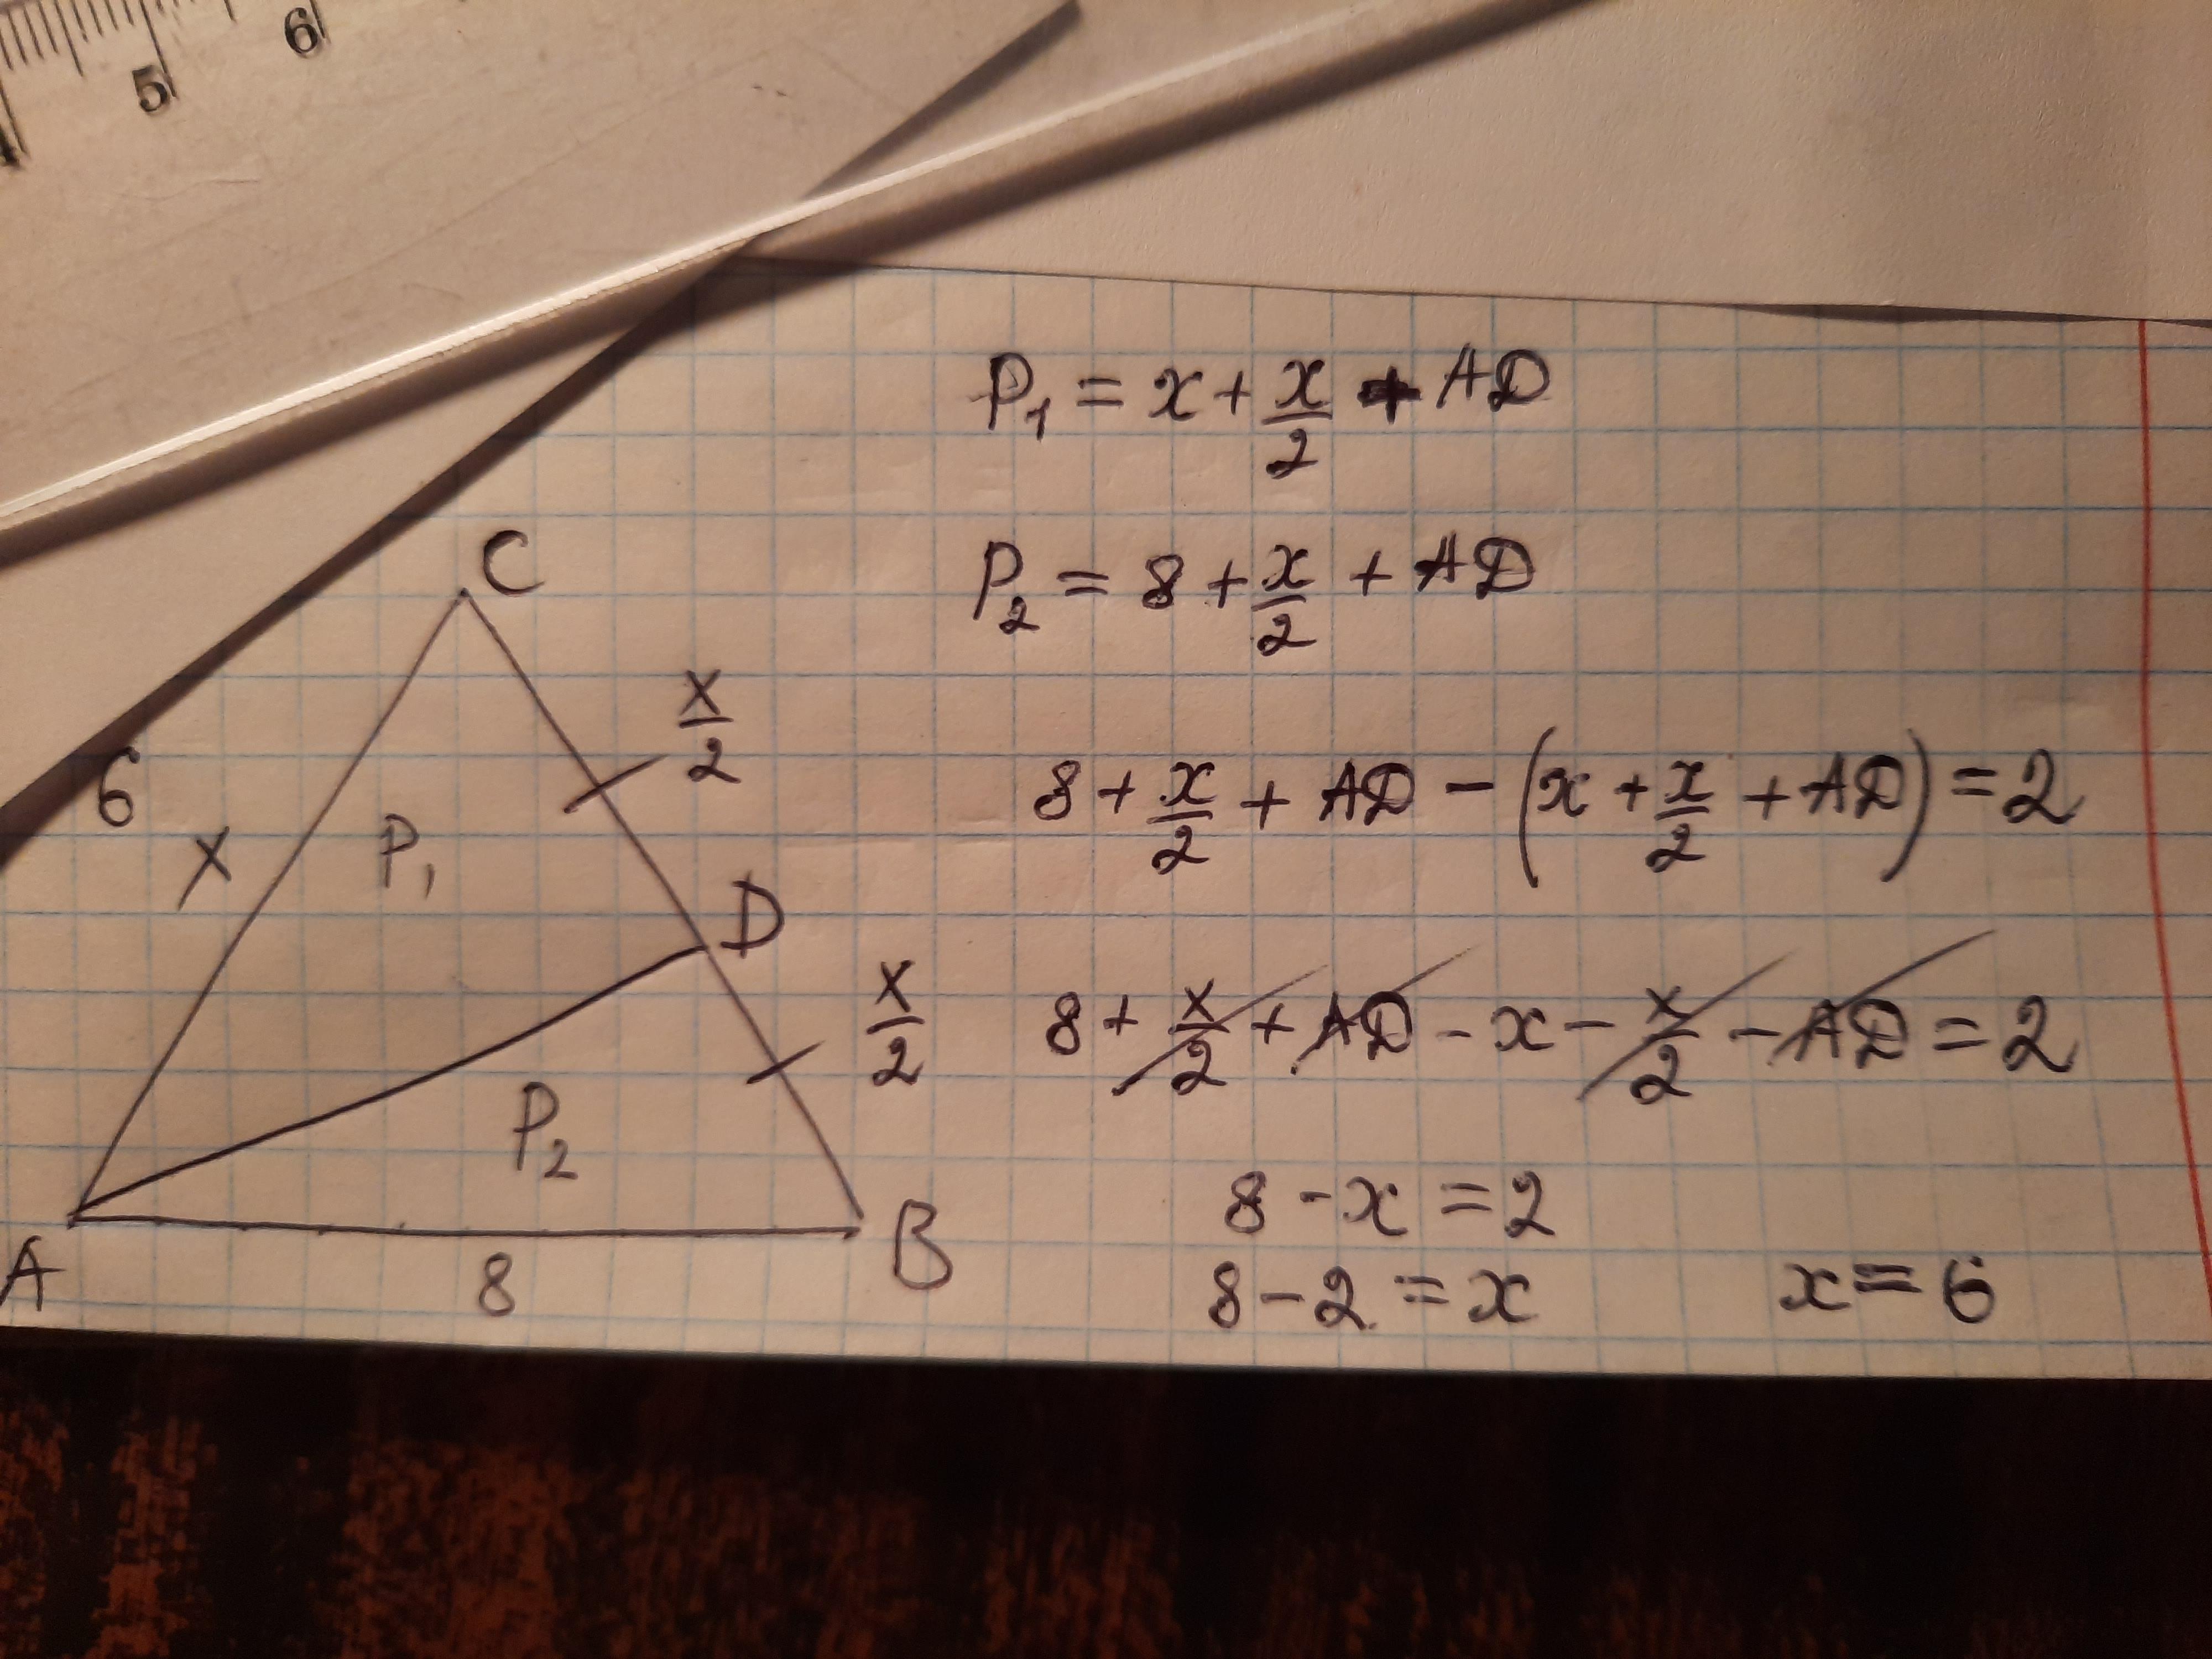 5 6
P₁ = x + x/2 + AD
P₂ = 8 + x/2 + AD
8 + x/2 + AD - (x + x/2 + AD) = 2
8 + x/2 + AD - x - x/2 - AD = 2
8 - x = 2
8 - 2 = x
x = 6
C
x/2
6
x
P₁
D
x/2
P₂
A
8
B